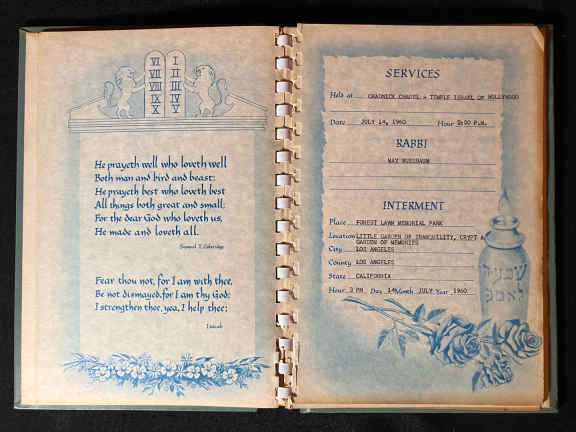 VI I
VII II
VIII III
IX IV
X V
He prayeth well who loveth well
Both man and bird and beast;
He prayeth best who loveth best
All things both great and small;
For the dear God who loveth us,
He made and loveth all.
Samuel T. Coleridge
Fear thou not, for I am with thee,
Be not dismayed, for I am thy God;
I strengthen thee, yea, I help thee;
Isaiah
SERVICES
Held at CHADWICK CHAPEL - TEMPLE ISRAEL OF HOLLYWOOD
Date JULY 14, 1960 Hour 2:00 P.M.
RABBI
MAX NUSSBAUM
INTERMENT
Place FOREST LAWN MEMORIAL PARK
Location LITTLE GARDEN OF TRANQUILITY, CRYPT A
GARDEN OF MEMORIES
City LOS ANGELES
County LOS ANGELES
State CALIFORNIA
Hour 3 PM Day 14 Month JULY Year 1960